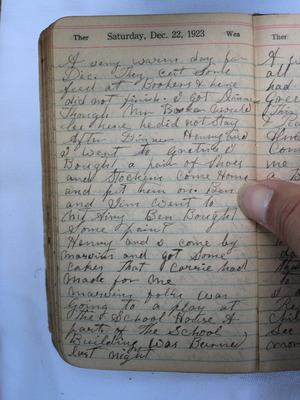 Ther Saturday, Dec. 22, 1923 Wea
A very warm day for
Dec. They cut some
feed at Bookers & here
did not finish. I got dinner
though Mr Booker would
be here, he did not stay
After Dinner Henry and
I went to
Bought a pair of shoes
and Stockens Come Home
and put them on. Ben
and Jim went to
Ben Bought
Some paint
Henny and I come by
marvins and got some
cakes That Carrie had
made for me
marving folks was
going to a play at
The School House A
part of The School
Building was Burned
last night
Ther